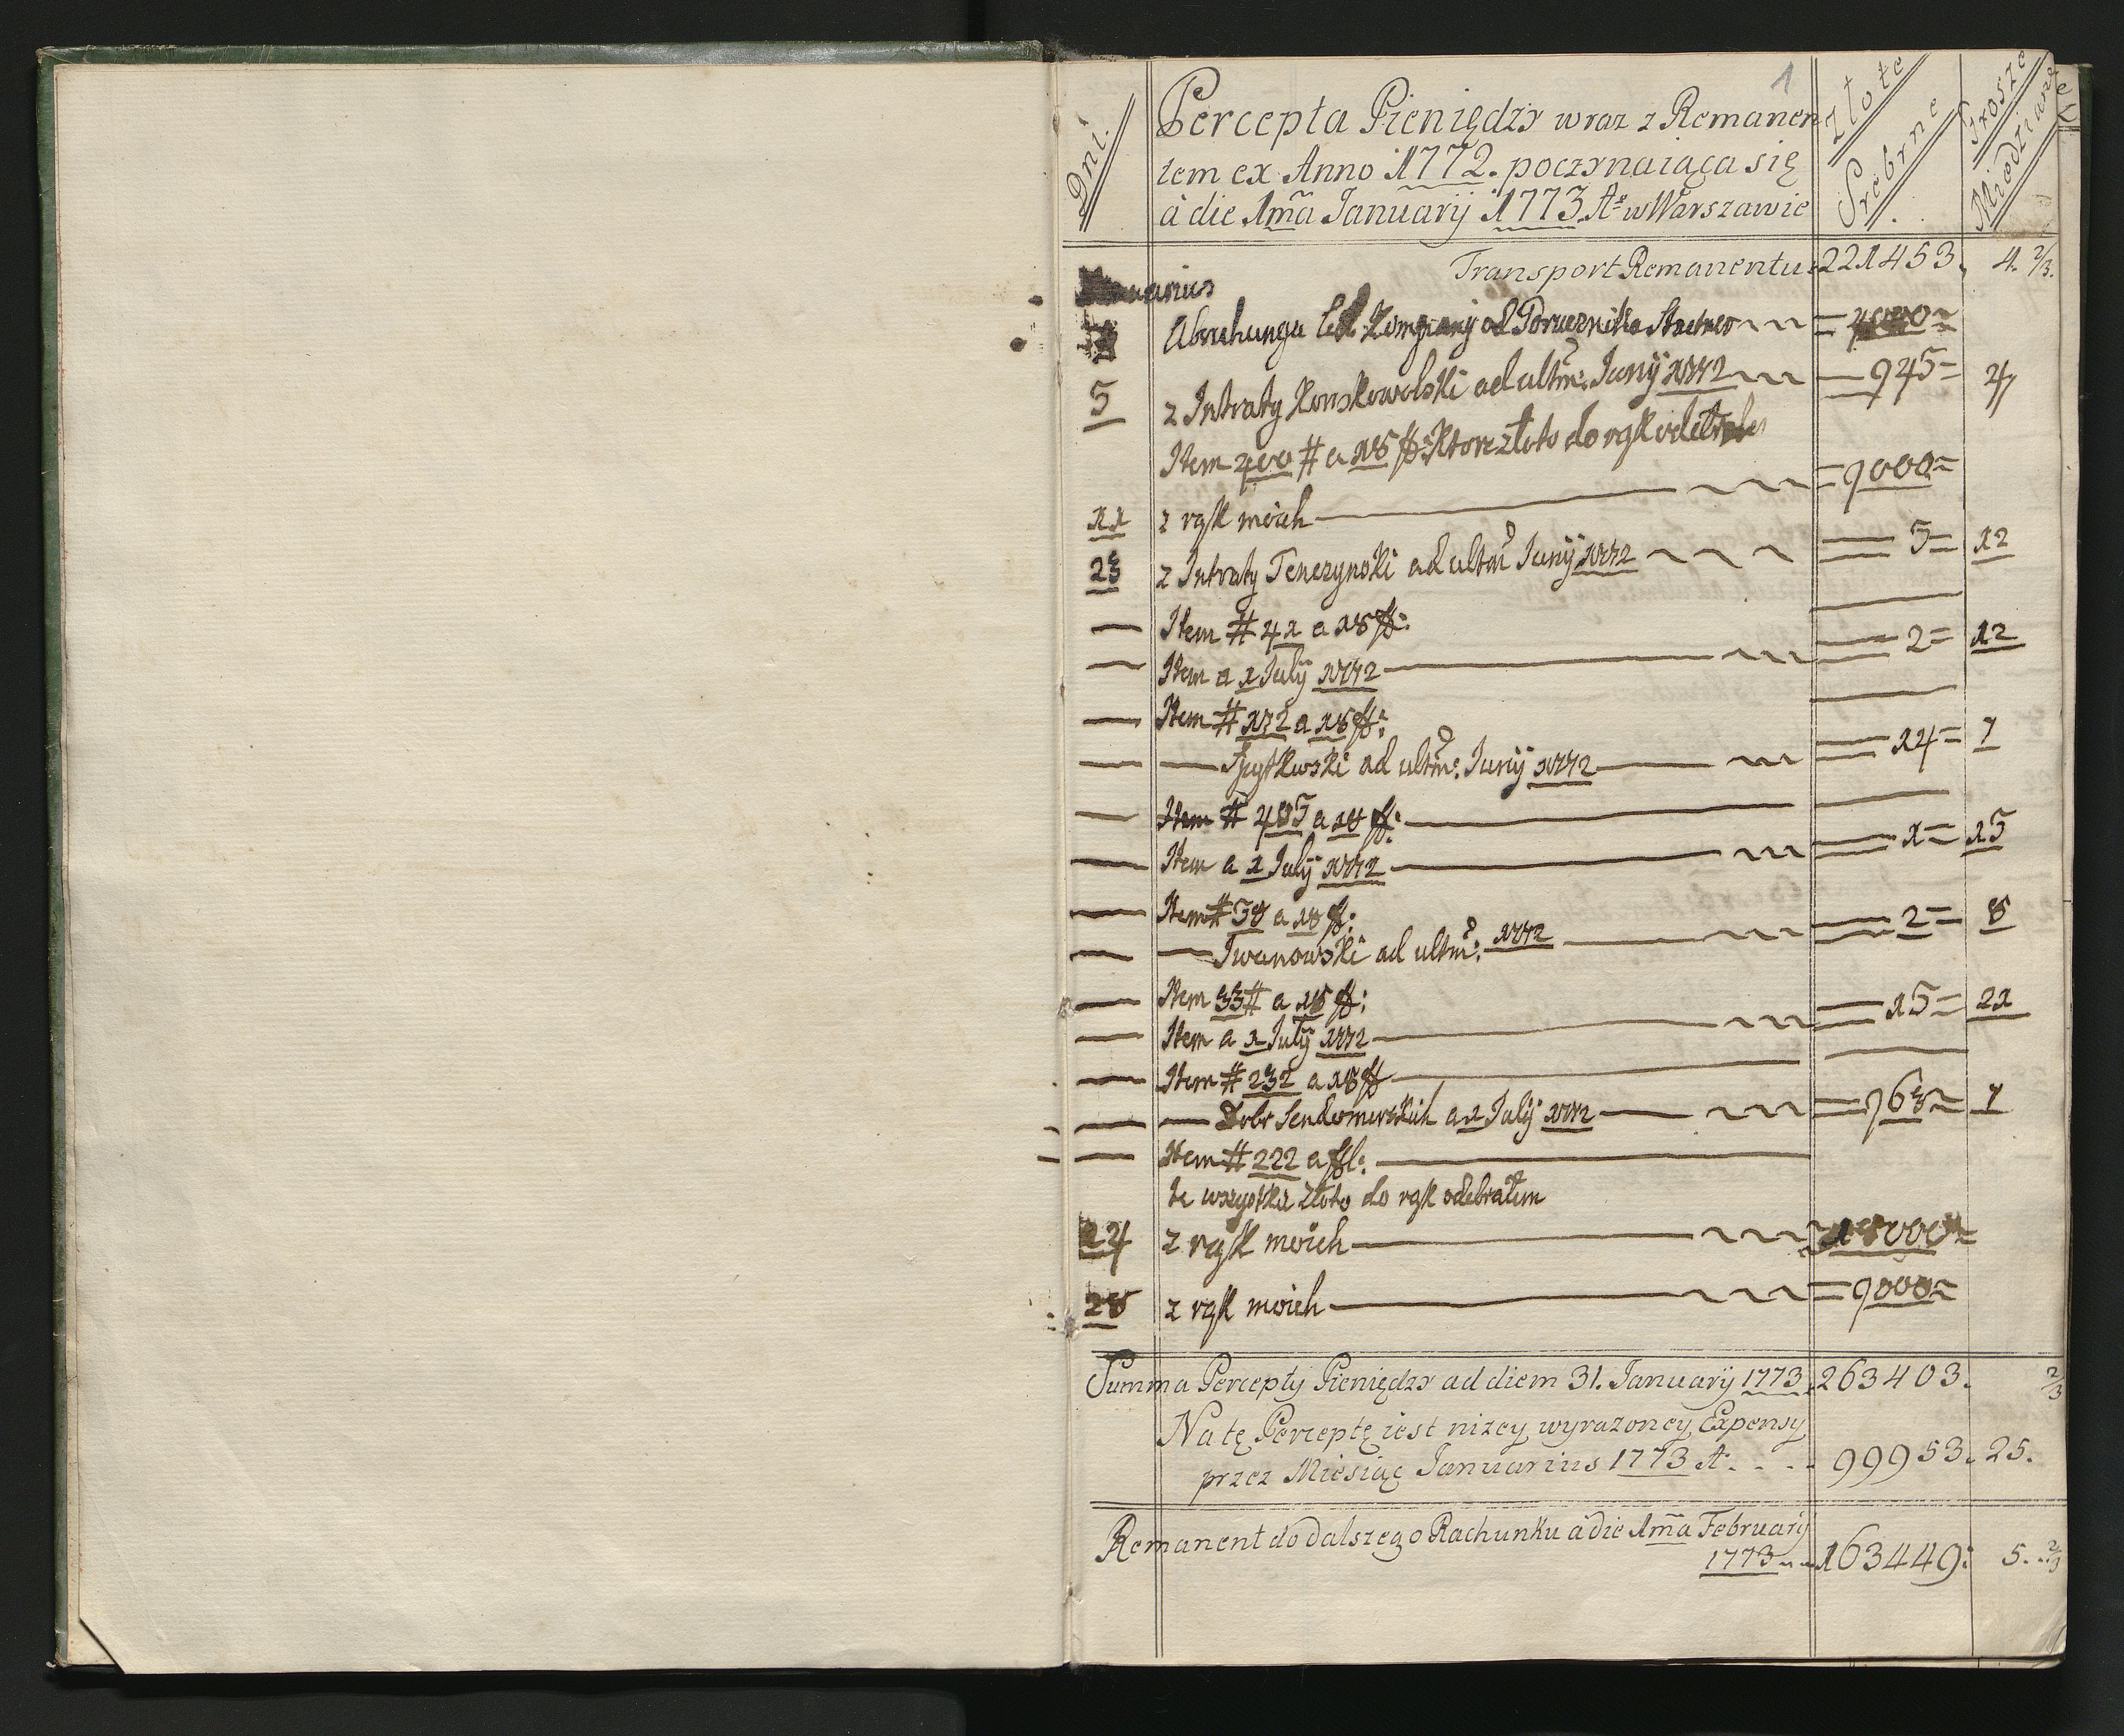 1
Dni.
Percepta Pieniędzy wraz z Remanen
tem ex Anno 1772. poczynaiąca się
à die 1mā January 1773 Ao w Warszawie
Złote Srebrne
Grosze Miedziane
Transport Remanentu 221453. 4. 2/3.
Kompany od Porucznika
5 z Intraty Konskowolski ad ultm: Junÿ 1772 945 = 4
Item 400 # a 18 f: Ktore złoto do rąk
11 z rąk moich = 9000 =
23 z Intraty Tenczynski ad ultm Junÿ 1772 5 = 12
Item # 41 a 18 f:
Item a 1 Julÿ 1772 2 = 12
Item # 172 a 18 f:
ad ultm: Junÿ 1772 14 = 7
Item # 485 a 18 f:
Item a 1 Julÿ 1772 1 = 15
Item # 58 a 18 f:
Iwanowski ad ultm: 1772 2 = 8
Item 33 # a 18 f:
Item a 1 Julÿ 1772 15 = 21
Item # 232 a 18 f
Dobr Sendomirskich a 1 Julÿ 1772 963 = 7
Item # 222 a fl:
te wszystkie złoto do rąk odebrałem
24 z rąk moich 18000 =
28 z rąk moich = 9000 =
Summa Percepty Pieniędzy ad diem 31. Januarÿ 1773. 263403. 2/3
Na tę Perceptę iest nizey wyrazoney Expensy
przez Miesiąc Januarius 1773 A. . . . 99953. 25.
Remanent do dalszego Rachunku à die 1mā Februarÿ
1773 163449: 5. 2/3